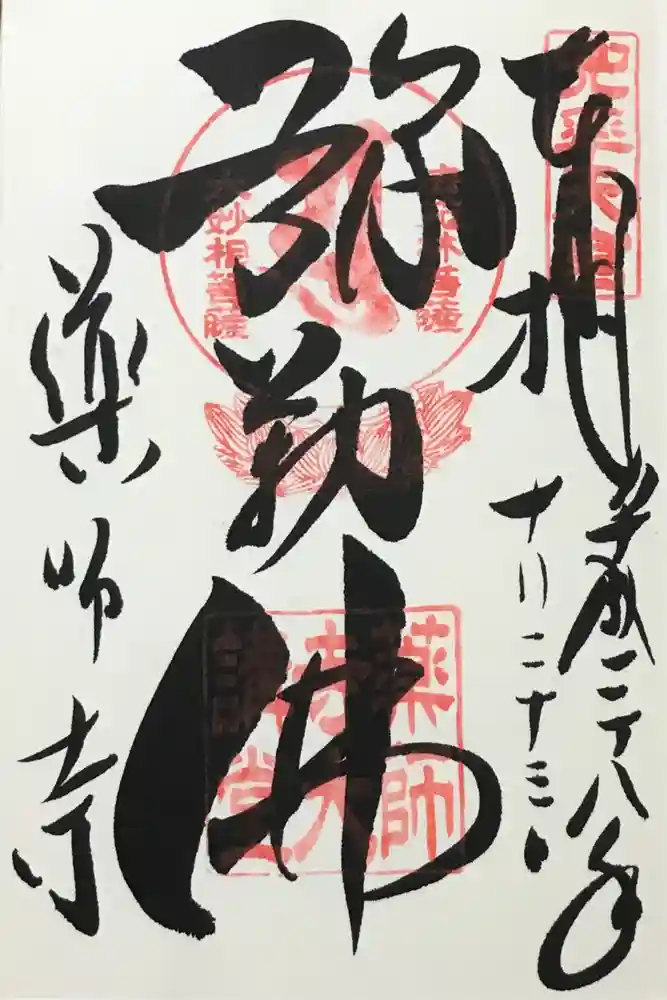 奉拝
平成二十八年
十月二十三日
法苑林菩薩
弥勒佛
大妙相菩薩
薬師
寺大
講堂
薬師寺